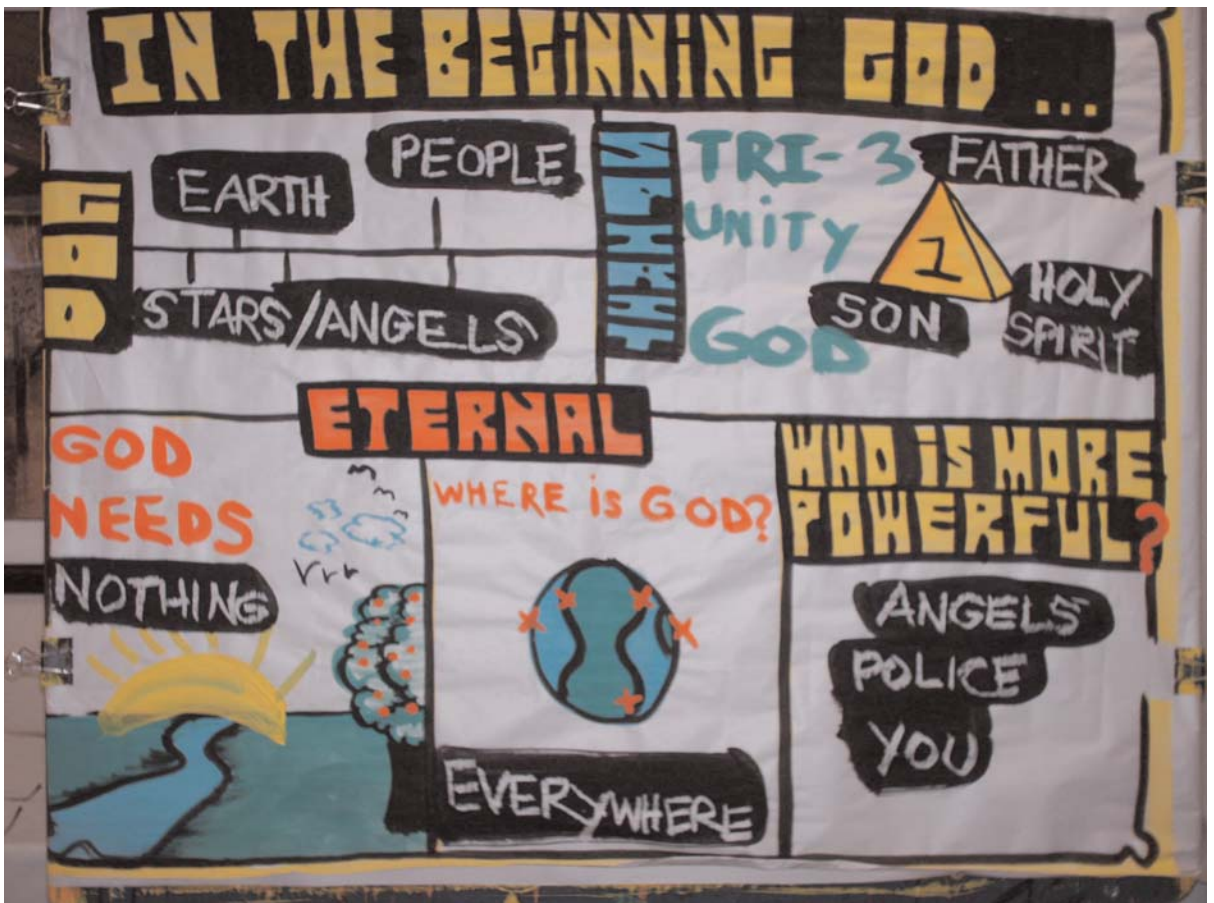 IN THE BEGiNNiNG GOD ...
GOD
EARTH
PEOPLE
STARS/ANGELS
TRI-3
UNiTY
GOD
FATHER
1
SON
HOLY
SPIRIT
ETERNAL
GOD
NEEDS
NOTHING
WHERE iS GOD?
EVERYWHERE
WHO iS MORE
POWERFUL?
ANGELS
POLICE
YOU